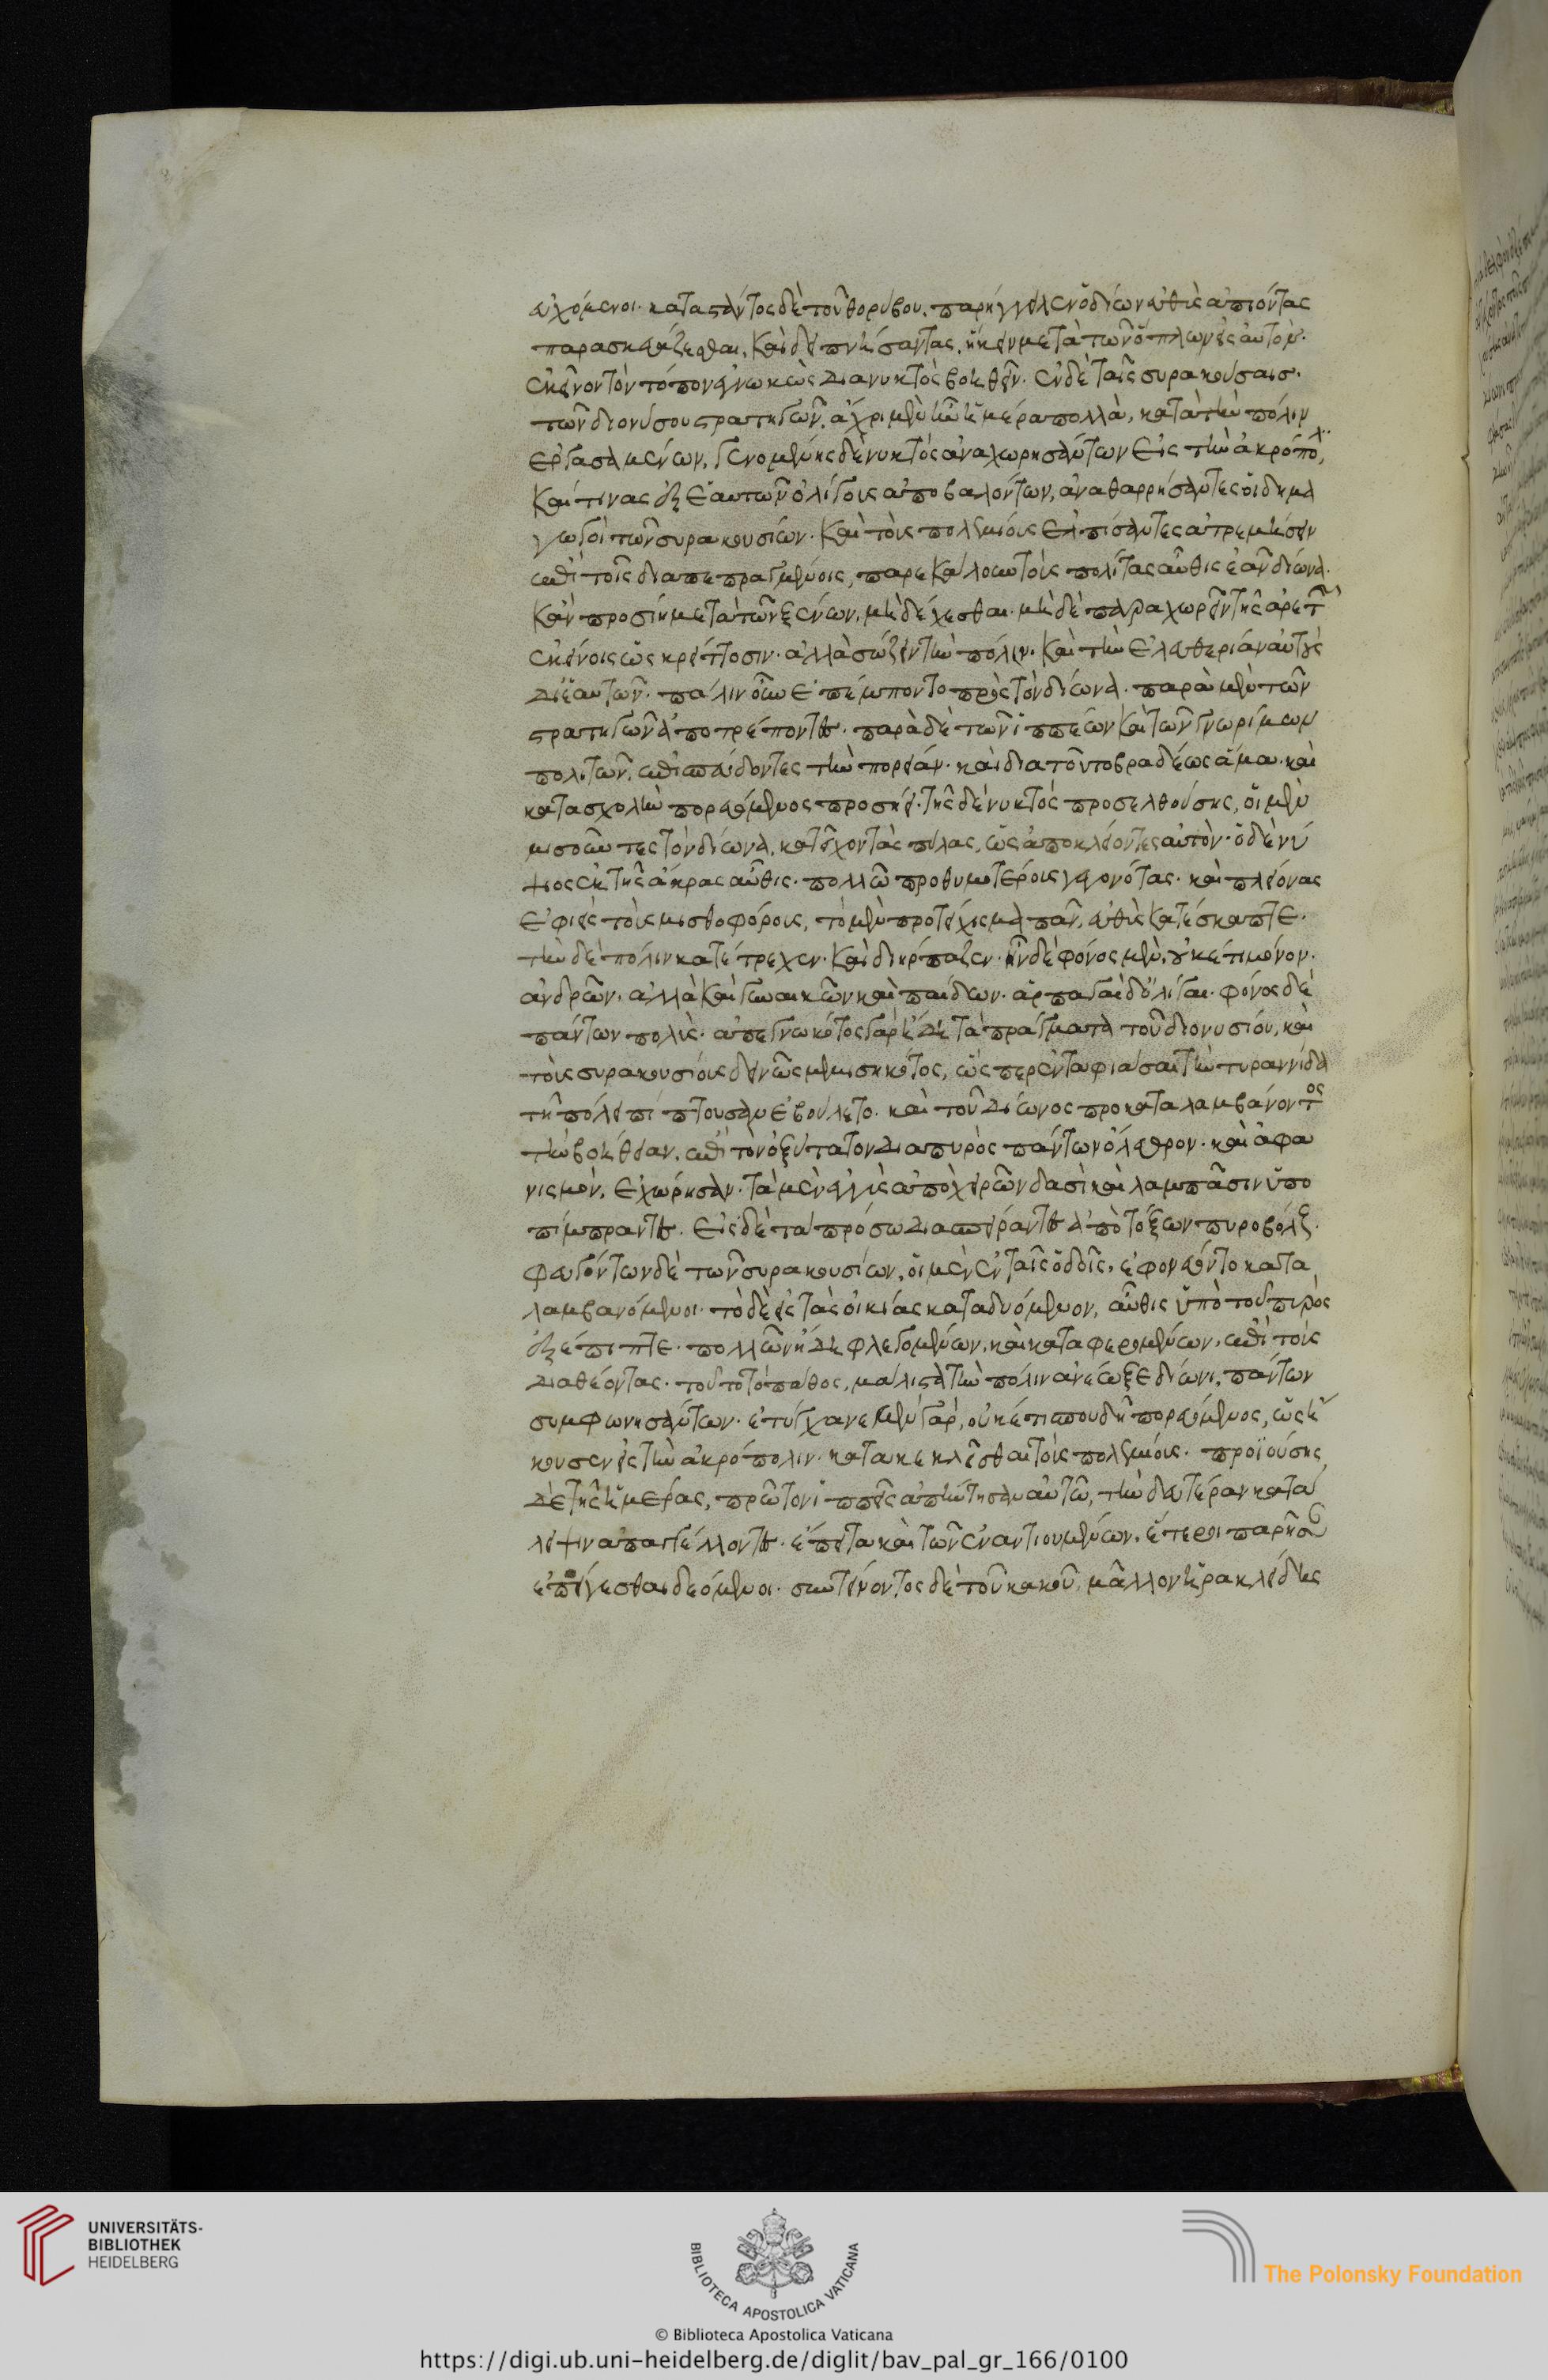 ευχόμενοι. καταστάντος δὲ τοῦ θορύβου, παρήγγειλεν ὁ δίων εὐθὺς ἀπιόντας
παρασκευάζεσθαι, καὶ δειπνήσαντας, ἥκειν μετὰ τῶν ὅπλων εἰς αὐτὸν
ἐκεῖνον τὸν τόπον ἐγνωκὼς διανυκτὸς βοηθεῖν. ἐν δὲ ταῖς συρακούσαισ.
τῶν διονύσου στρατηγῶν, ἄχρι μὲν ἦν ἡμέρα πολλὰ, κατὰ τὴν πόλιν
ἐργασαμένων, γενομένης δὲ νυκτὸς ἀναχωρησάντων εἰς τὴν ἀκρόπολ
καί τινας ἐξ ἑαυτῶν ὀλίγους ἀποβαλόντων, ἀναθαρρήσαντες οἱ δημα
γωγοὶ τῶν συρακουσίων. καὶ τοὺς πολεμίους ἐλπίσαντες ἀτρεμήσειν
ἐπὶ τοῖς διαπεπραγμένοις, παρεκάλουν τοὺς πολίτας αὖθις ἐᾶν δίωνα.
κἂν προσίη μετὰ τῶν ξένων, μὴ δέχεσθαι. μὴ δὲ παραχωρεῖν τῆς ἀρετῆς
ἐκείνοις ὡς κρείττοσιν. ἀλλὰ σώζειν τὴν πόλιν. καὶ τὴν ἐλευθερίαν αὐτοὺς
δι ἑαυτῶν. πάλιν οὖν ἐπέμποντο πρὸς τὸν δίωνα. παρὰ μὲν τῶν
στρατηγῶν ἀποτρέποντες. παρὰ δὲ τῶν ἱππέων καὶ τῶν γνωρίμων
πολιτῶν, ἐπισπεύδοντες τὴν πορείαν. καὶ διατοῦτο βραδέως ἅμα. καὶ
κατασχολὴν πορευόμενος προσήει. τῆς δὲ νυκτὸς προσελθούσης, οἱ μὲν
μισοῦντες τὸν δίωνα, κατεῖχον τὰς πύλας, ὡς ἀποκλείοντες αὐτὸν. ὁ δὲ νύ
ψιος ἐκ τῆς ἄκρας αὖθις. πολλῶ προθυμοτέρους γεγονότας. καὶ πλείονας
ἐφιεὶς τοὺς μισθοφόρους, τὸ μὲν προτείχισμα πᾶν, εὐθὺς κατέσκαπτε.
τὴν δὲ πόλιν κατέτρεχεν. καὶ διήρπαζεν. ἦν δὲ φόνος μὲν, οὐκέτι μόνον.
ἀνδρῶν. ἀλλὰ καὶ γυναικῶν καὶ παίδων. ἁρπαγαὶ δ' ὀλίγαι. φόνος δὲ
πάντων πολὺς. ἀπεγνωκότος γὰρ ἤδη τὰ πράγματα τοῦ διονυσίου, καὶ
τοὺς συρακουσίους δεινῶς μεμισηκότος, ὥσπερ ἐνταφιάσαι τὴν τυραννίδα
τῆ πόλει πίπτουσαν ἐβούλετο. καὶ τοῦ δίωνος προκαταλαμβάνοντος
τὴν βοήθειαν. ἐπὶ τὸν ὀξύτατον διαπυρὸς πάντων ὄλεθρον. καὶ ἀφα
νισμὸν, ἐχώρησαν. τὰ μὲν ἐγγὺς ἀπὸ χειρῶν δασὶ καὶ λαμπάσιν ὑπο
πίμπραντες. εἰς δὲ τὰ πρόσω διασπείραντες ἀπὸ τόξων πυροβόλους.
φευγόντων δὲ τῶν συρακουσίων, οἱ μὲν ἐν ταῖς ὁδοῖς, ἐφονεύοντο κατα
λαμβανόμενοι. τὸ δὲ εἰς τὰς οἰκίας καταδυόμενον, αὖθις ὑπὸ τοῦ πυρὸς
ἐξέπιπτε. πολλῶν ἤδη φλεγομένων, καὶ καταφερομένων, ἐπὶ τοὺς
διαθέοντας. τοῦτο τὸ πάθος, μάλιστα τὴν πόλιν ἀνέωξε δίωνι, πάντων
συμφωνησάντων. ἐτύγχανε μὲν γὰρ, οὐκέτι σπουδῆ πορευόμενος, ὡς ἤ
κουσεν εἰς τὴν ἀκρόπολιν. κατακεκλεῖσθαι τοὺς πολεμίους. προϊούσης
δὲ τῆς ἡμέρας, πρῶτον ἱππεῖς ἀπήντησαν αὐτῶ, τὴν δευτέραν κατά
ληψιν ἀπαγγέλλοντες. ἔπειτα καὶ τῶν ἐναντιουμένων, ἕτεροι παρῆσαν
ἐπείγεσθαι δεόμενοι. συντείνοντος δὲ τοῦ κακοῦ, μᾶλλον ἡρακλείδης
UNIVERSITÄTS-
BIBLIOTHEK
HEIDELBERG
BIBLIOTECA APOSTOLICA VATICANA
The Polonsky Foundation
© Biblioteca Apostolica Vaticana
https://digi.ub.uni-heidelberg.de/diglit/bav_pal_gr_166/0100